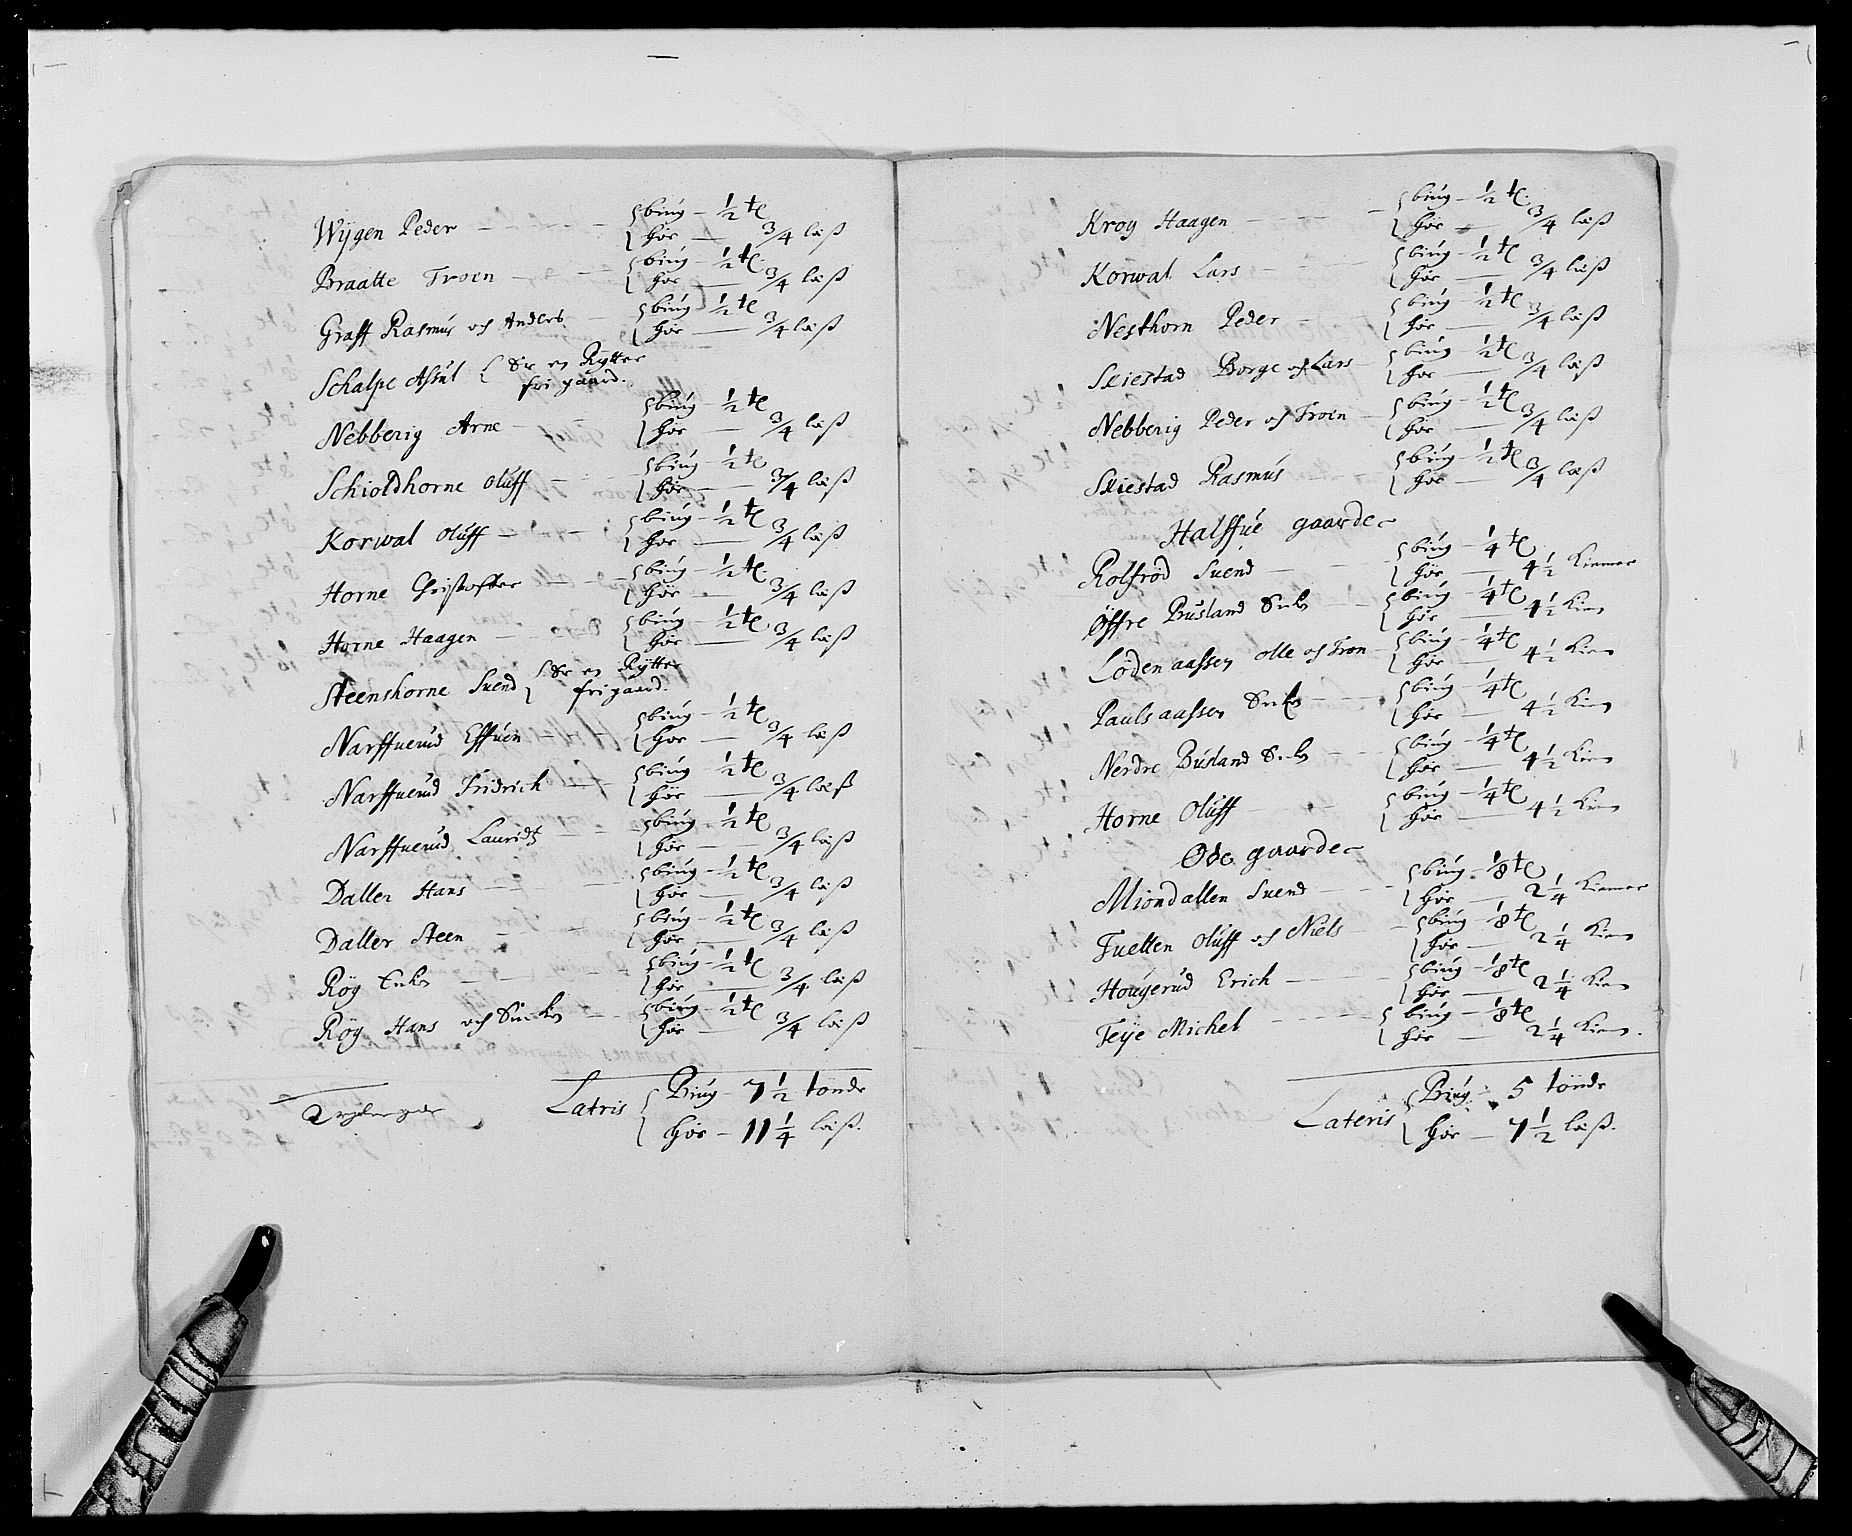 Wijgen Peder — { biúg — ½ te
{ høe — ¾ læß
Braatte Troen — { biúg — ½ te
{ høe — ¾ læß
Graff Rasmús och Anders — { biúg — ½ te
{ høe — ¾ læß
Schalpe Assúl { Er en Rytter
fri gaard.
Nebberig Arne — { biúg — ½ te
{ høe — ¾ læß
Schioldhorne Olúff — { biúg — ½ te
{ høe — ¾ læß
Korwal Olúff — { biúg — ½ te
{ høe — ¾ læß
Horne Christoffer — { biúg — ½ te
{ høe — ¾ læß
Horne Haagen — { biúg — ½ te
{ høe — ¾ læß
Steenshorne Suend { Er en Rytter
fri gaard.
Narffuerud Effúen — { biúg — ½ te
{ høe — ¾ læß
Narffuerud Fridrich — { biúg — ½ te
{ høe — ¾ læß
Narffuerud Lauridtz — { biúg — ½ te
{ høe — ¾ læß
Daller Hans — { biúg — ½ te
{ høe — ¾ læß
Daller Steen — { biúg — ½ te
{ høe — ¾ læß
Røy — { biúg — ½ te
{ høe — ¾ læß
Røy Hans och — { biúg — ½ te
{ høe — ¾ læß
Latris { Biúg — 7 ½ tønde
{ høe — 11 ¼ læß.
Krog Haagen — { biúg — ½ te
{ høe — ¾ læß
Korwal Lars — { biúg — ½ te
{ høe — ¾ læß
Nesthorn Peder — { biúg — ½ te
{ høe — ¾ læß
Skiestad Borge och Lars { biúg — ½ te
{ høe — ¾ læß
Nebberig Peder och Troen — { biúg — ½ te
{ høe — ¾ læß
Skiestad Rasmús { biúg — ½ te
{ høe — ¾ læß
Halffue gaarde
Rolfrød Suend — { biúg — ¼ te
{ høe — 4 ½ Kiemer
Øffre Búsland — { biúg — ¼ te
{ høe — 4 ½ Kiem
Lødenaassen Olle och Tron — { biúg — ¼ te
{ høe — 4 ½ Kiem
Paulsaassen — { biúg — ¼ te
{ høe — 4 ½ Kiem
Nerdre Búsland — { biúg — ¼ te
{ høe — 4 ½ Kiem
Horne Olúff — { biúg — ¼ te
{ høe — 4 ½ Kiem
Øde gaarde
Miondallen Suend — { biúg — ⅛ te
{ høe — 2 ¼ Kiemer
Tuetten Olúff och Niels — { biúg — ⅛ te
{ høe — 2 ¼ Kiem
Hougerúd Erich — { biúg — ⅛ te
{ høe — 2 ¼ Kiem
Teije Michel — { biúg — ⅛ te
{ høe — 2 ¼ Kiem.
Lateris { Biúg — 5 tønde
{ høe — 7 ½ læß.